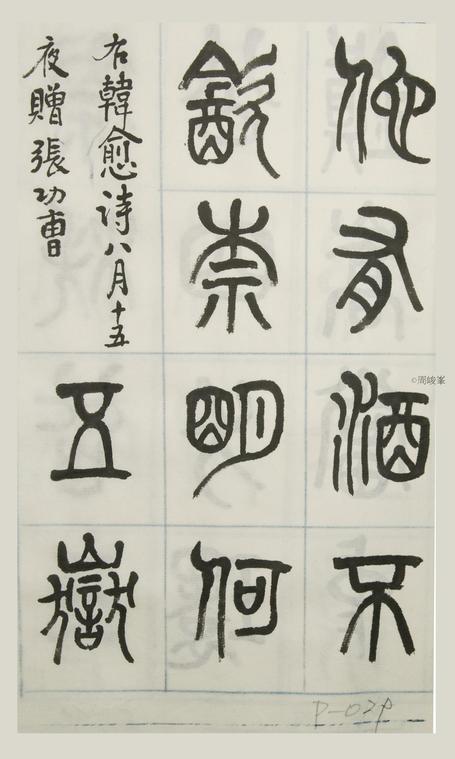 他有酒不
㱃柰明何
右韓愈詩八月十五
夜贈張功曹
五嶽
©周峻峯